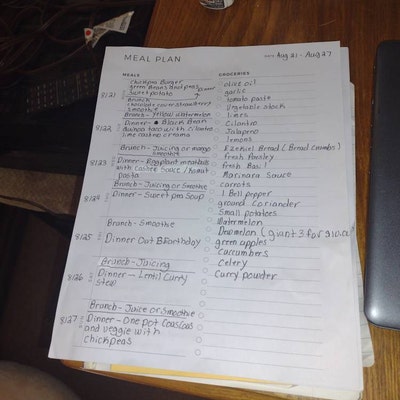 MEAL PLAN
DATE: Aug 21 - Aug 27
MEALS
Chickpea Burger
green Beans and peas
Sweet potato
Dinner
8/21
Brunch
chocolate cover strawberry
smoothie
Brunch - Yellow watermelon
8/22
Dinner - Black Bean
quinoa taco with cilantro
lime cashew crema
Brunch - Juicing or mango
smoothie
8/23
Dinner - Eggplant meatballs
with cashee sauce / tomat
pasta
Brunch - Juicing or Smoothie
8/24
Dinner - Sweet pea Soup
Brunch - Smoothie
8/25
Dinner Out BBirthday
Brunch - Juicing
8/26
Dinner - Lentil Curry
stew
Brunch - Juice or Smoothie
8/27
Dinner - One pot Couscous
and veggie with
chickpeas
GROCERIES
olive oil
garlic
tomato paste
Vegetable stock
limes
Cilantro
Jalapeno
lemons
Ezekiel Bread (Bread crumbs)
fresh parsley
fresh Basil
Marinara Sauce
carrots
1 Bell pepper
ground coriander
small potatoes
Watermelon
Dewmelon (giant 3 for
green apples
Cuccumbers
Celery
Curry powder